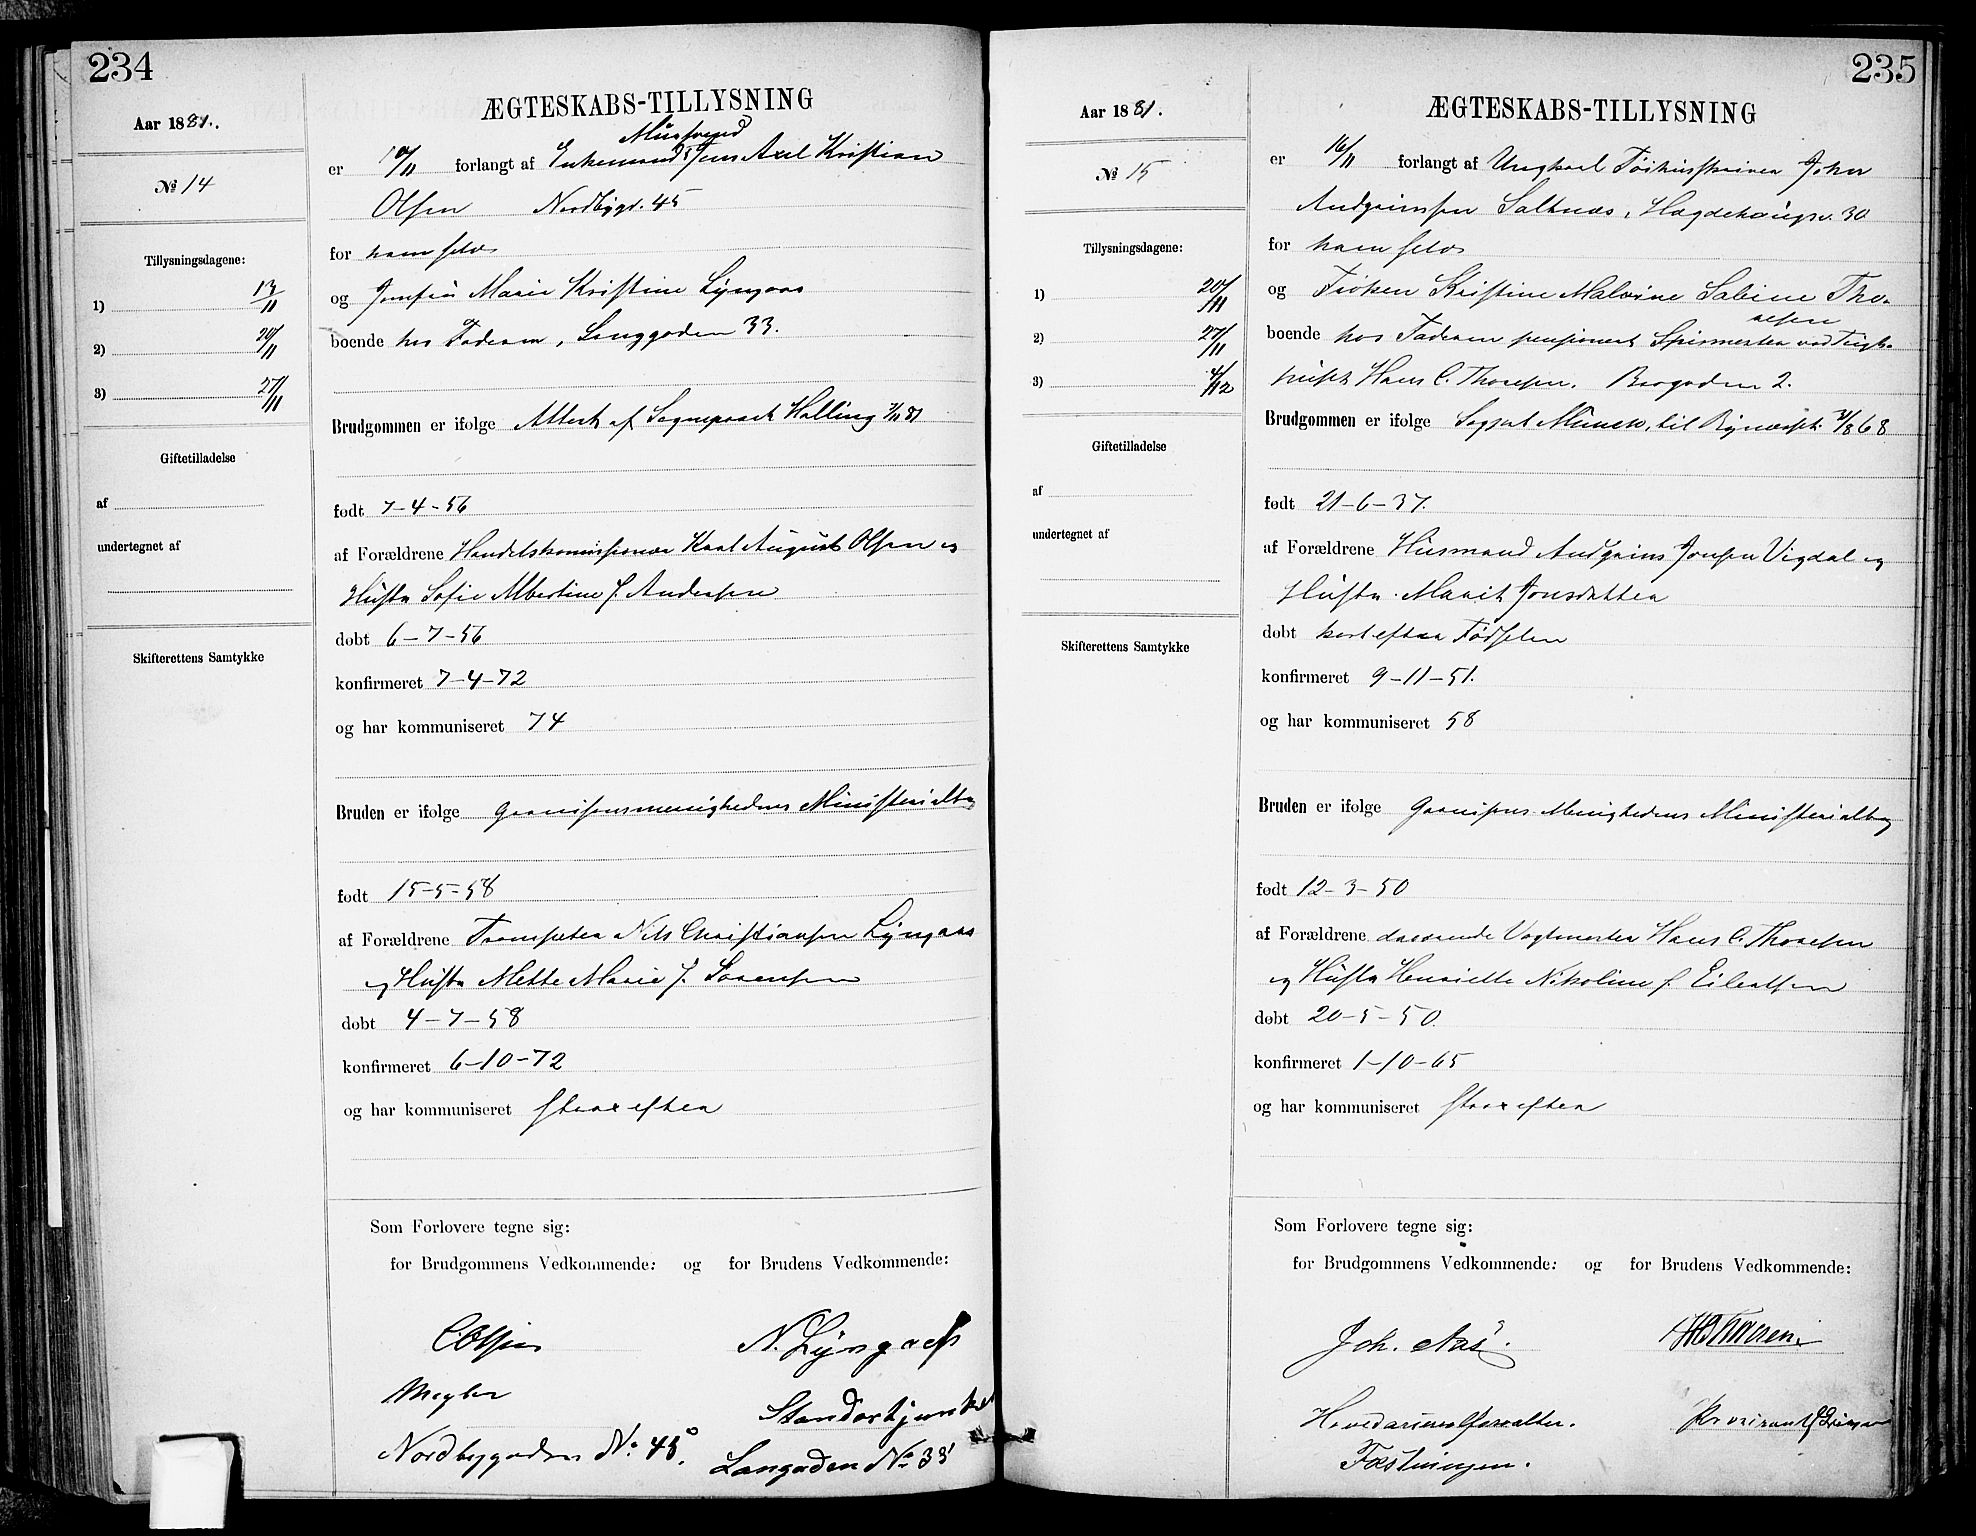 234
Aar 1881.
No 14
Tillysningsdagene:
1) 13/11
2) 20/11
3) 27/11
Giftetilladelse
af
undertegnet af
Skifterettens Samtykke
ÆGTESKABS-TILLYSNING
er 10/11 forlangt af Enkemand Jens Axel Kristian
Olsen Nordbygd. 45
for ham selv
og Jomfru Marie Kristine Lyngaas
boende hos Faderen, Langgaden 33.
Brudgommen er ifølge Attest af Sogneprest Halling
født 7-4-56
af Forældrene Handelskommissionær Karl August Olsen og
Hustru Sofie Albertine f. Andersen
døbt 6-7-56
konfirmeret 7-4-72
og har kommuniseret 74
Bruden er ifølge Garnisonsmenighedens Ministerialbog
født 15-5-58
af Forældrene Trompeter Nils Christiansen Lyngaas
og Hustru Mette Marie f. Sørensen
døbt 4-7-58
konfirmeret 6-10-72
og har kommuniseret staxefter
Som Forlovere tegne sig:
for Brudgommens Vedkommende: og for Brudens Vedkommende:
C Olsen N. Lyngaas
Megler Standartjunker
Nordbygaden No 45. Langaden No 33
235
Aar 1881.
No 15
Tillysningsdagene:
1) 20/11
2) 27/11
3) 4/12
Giftetilladelse
af
undertegnet af
Skifterettens Samtykke
ÆGTESKABS-TILLYSNING
er 16/11 forlangt af Ungkarl Tøihusskriver John
Andgrimsen Saltnæs, Hagdehougv. 30
for ham selv
og Frøken Kristine Malvine Sabine Tho-
resen
boende hos Faderen pensioneret Spismester ved Tugt-
huset Hans C. Thoresen. Bergaden 2.
Brudgommen er ifølge Sogprt Munch, til 68
født 21-6-37.
af Forældrene Husmand Andgrims Jonsen Vigdal og
Hustru Marit Jonsdatter
døbt kort efter Fødselen
konfirmeret 9-11-51.
og har kommuniseret 58
Bruden er ifølge Garnisons Menighedens Ministerialbog
født 12-3-50
af Forældrene daværende Vogtmester Hans C. Thoresen
og Hustru Henriette Nikoline f. Eilertsen
døbt 20-5-50.
konfirmeret 1-10-65
og har kommuniseret staxefter
Som Forlovere tegne sig:
for Brudgommens Vedkommende: og for Brudens Vedkommende:
Joh. Aas. H C Thoresen.
Hovedarsenalforvalter.
Fæstningen.